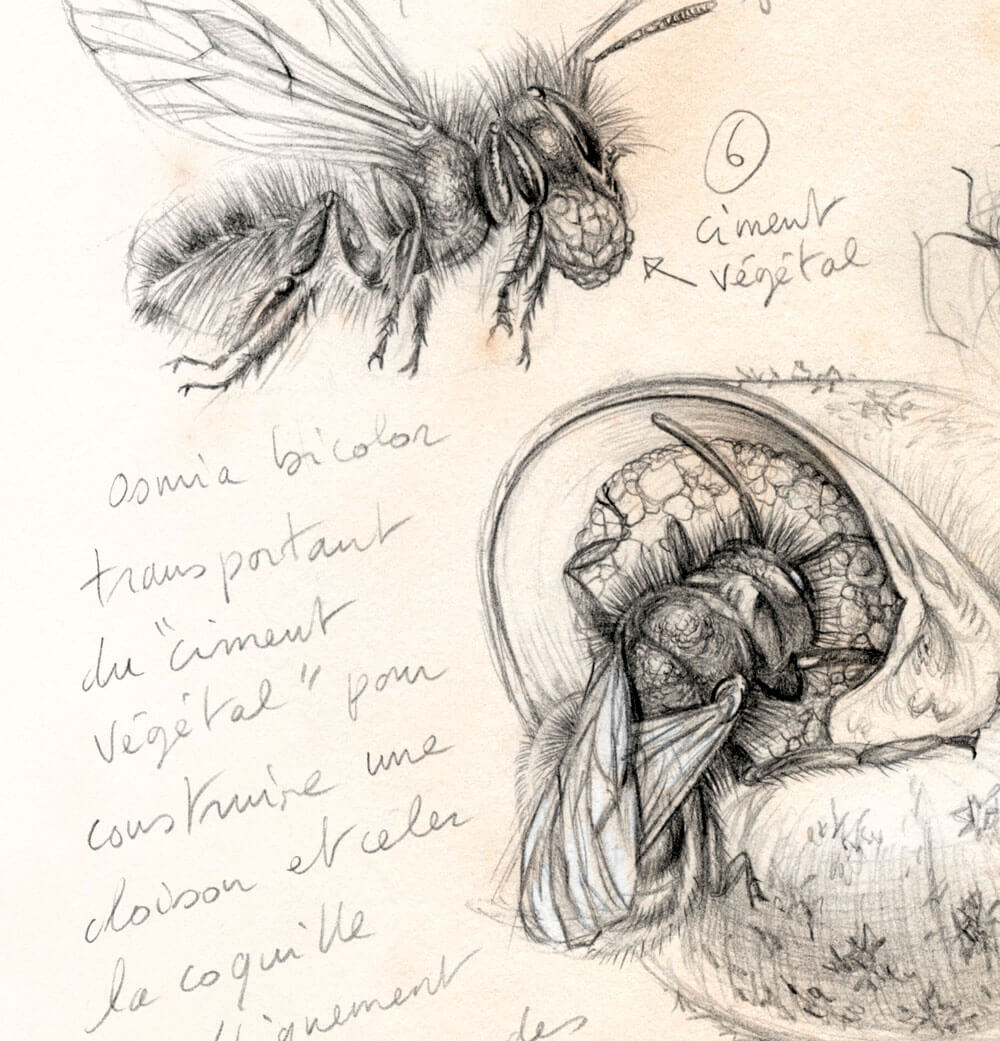 6
ciment
végétal
osmia bicolor
transportant
du "ciment
végétal" pour
construire une
cloison et celer
la coquille
des